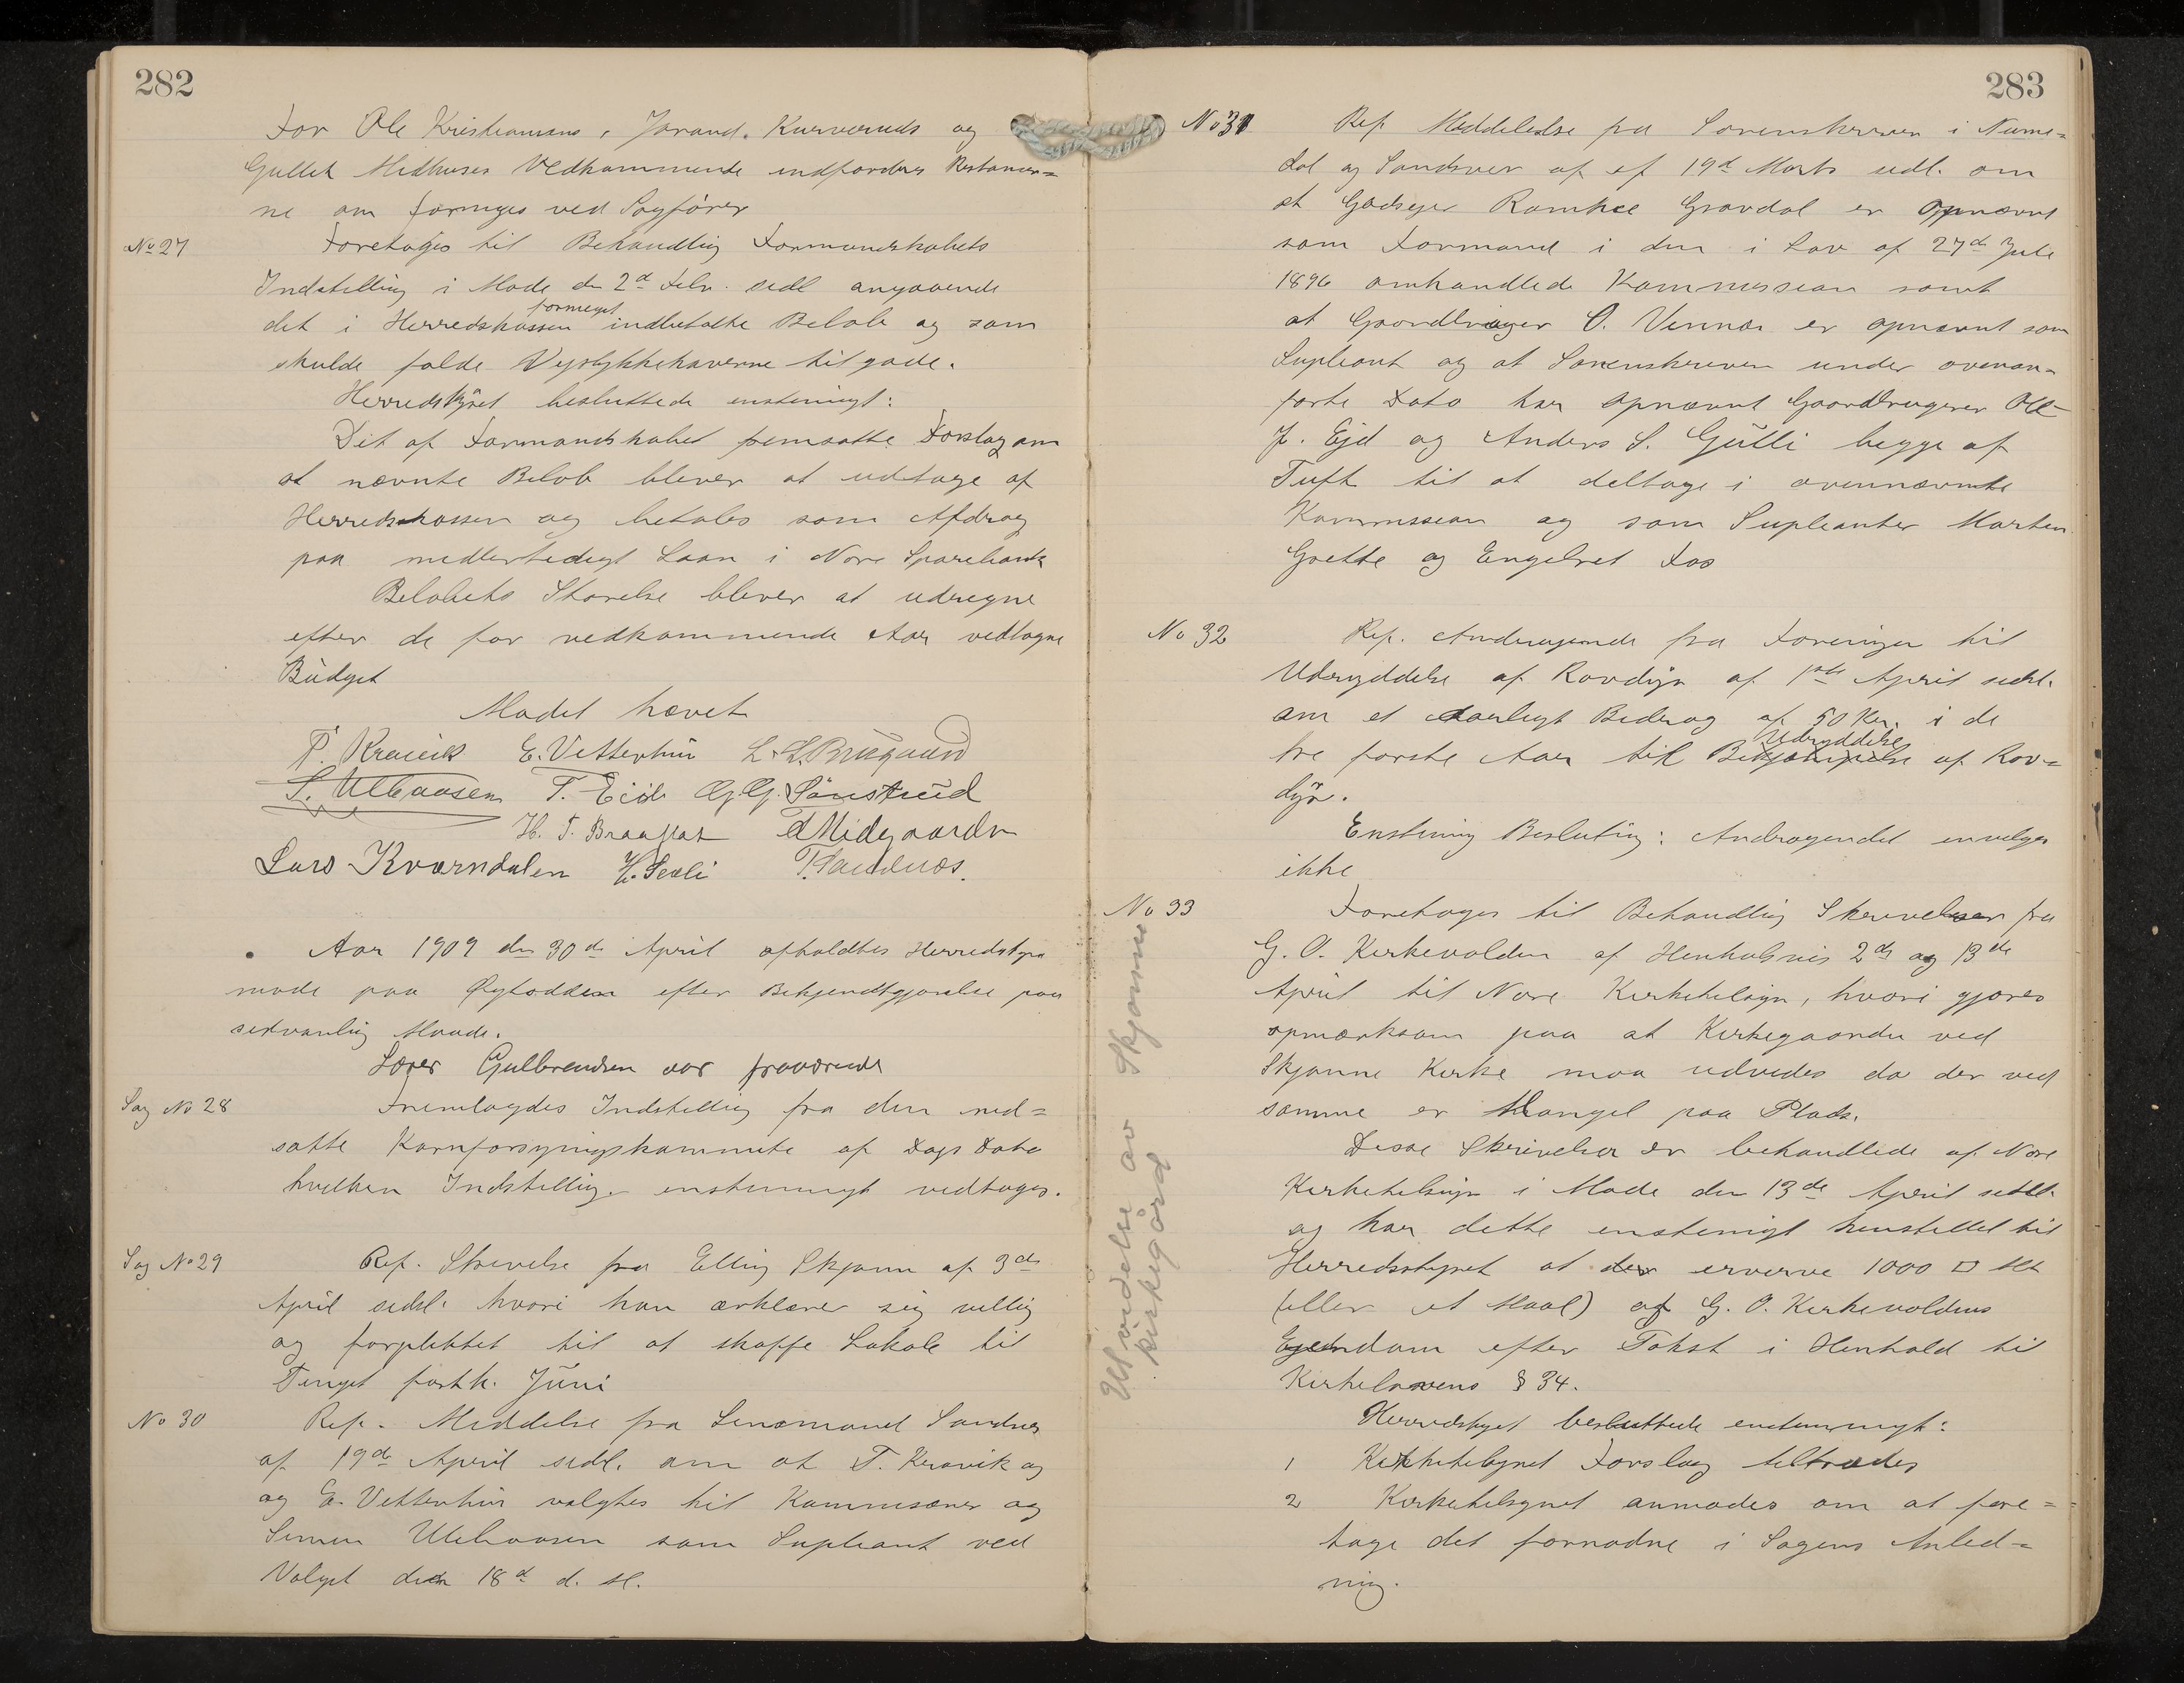 282
For Ole Kristiansens, Jorand. Kurveruds og
Gullek Medhuses Vedkommende indfordres Restancer=
ne om fornuges ved Sagfører
No 27
Foretages til Behandling Formandskabets
Indstilling i Møde den 2d Febr. sidl angaaende
det i Herredskassen formeget indbetalte Beløb og som
skulde falde Vejstykkehaverne tilgode.
Herredstyret besluttede enstemigt:
Det af Formandskabet fremsatte Forslag om
at nævnte Beløb bliver at udtage af
Herredskassen og betales som Afdrag
paa midlertidigt Laan i Nore Sparebank
Beløbets Størelse bliver at udregne
efter de for vedkommende Aar vedtagne
Büdget
Mødet hævet
T. Kravik E. Vetterhus L. L. Brügaard
S. Ulbaasen T. Eide G. G. Sønsterud
H. T. Braaflat Midgaarden
Lars Kværndalen H. Seeli T. Sandnæs.
Aar 1909 den 30de April afholdtes Herredstyre
møde paa Øygodden efter Bekjendtgjørelse paa
sedvanlig Maade.
Lærer Gulbrandsen var fraværende
Sag No 28
Fremlagdes Indstilling fra den ned=
satte Kornforsyningskommite af Dags Dato
hvilken Indstilling enstemmigt vedtages.
Sag No 29
Ref. Skrivelse fra Elling Skjønn af 3de
April sidstl. hvori han erklærer sig villig
og forpliktet til at skaffe Lokale til
Tinget førstk. Jüni
No 30
Ref. Meddelse fra Lensmand Sandnes
af 19de April sidl. om at T. Kravik og
og E. Vetterhus valgtes til Kommisærer og
Simen Ulbaasen som Supleant ved
Valget den 18d d. M.
283
No 31
Ref Meddelelse fra Sorenskriveren i Nume=
dal og Sandsver af af 19d Marts udl. om
at Godseger Ramhce Gravdal er opnævnt
som Formand i den i Lov af 27de Juli
1896 omhandlede Kommission samt
at Gaardbruger O. Vennæs er opnævnt som
Supleant og at Sorenskriveren under ovenan=
førte Dato har opnævnt Gaardbrugerer Ole
J. Ejd og Anders S. Gülli begge af
Tuft til at deltage i ovennævnte
Kommission og som Supleanter Marten
Grette og Engebret Fos
No 32
Ref. Andragende fra Foreningen til
Udryddelse af Rovdyr af 1ste April sidstl.
om et aarligt Bidrag af 50 Kr. i de
tre første Aar til Bekjæmpelse Udryddelse af Rov=
dyr.
Enstemig Beslutnig: Andragendet invilges
ikke
No 33
Foretages til Behandlig Skrivelser fra
G. O. Kirkevolden af Henholsvis 2de og 13de
April til Nore Kirketilsyn, hvori gjøres
opmærksom paa at Kirkegaarden ved
Skjønne Kirke maa udvides da der ved
samme er Mangel paa Plads.
Disse Skrivelser er behandlede af Nore
Kirketilsyn i Møde den 13de April sidstl.
og har dette enstemigt henstillet til
Herredsstyret at der erverve 1000 □ Mt
(eller et Maal) af G. O. Kirkevoldens
Ejendom efter Takst i Henhold til
Kirkelovens § 34.
Herredstyret besluttede enstemmigt:
1 Kirketilsynet Forslag tiltrædes
2 Kirketilsynet anmodes om at fore=
tage det fornødne i Sagens Anled=
ning.
Utvidelse av Skjønne
kirkegård